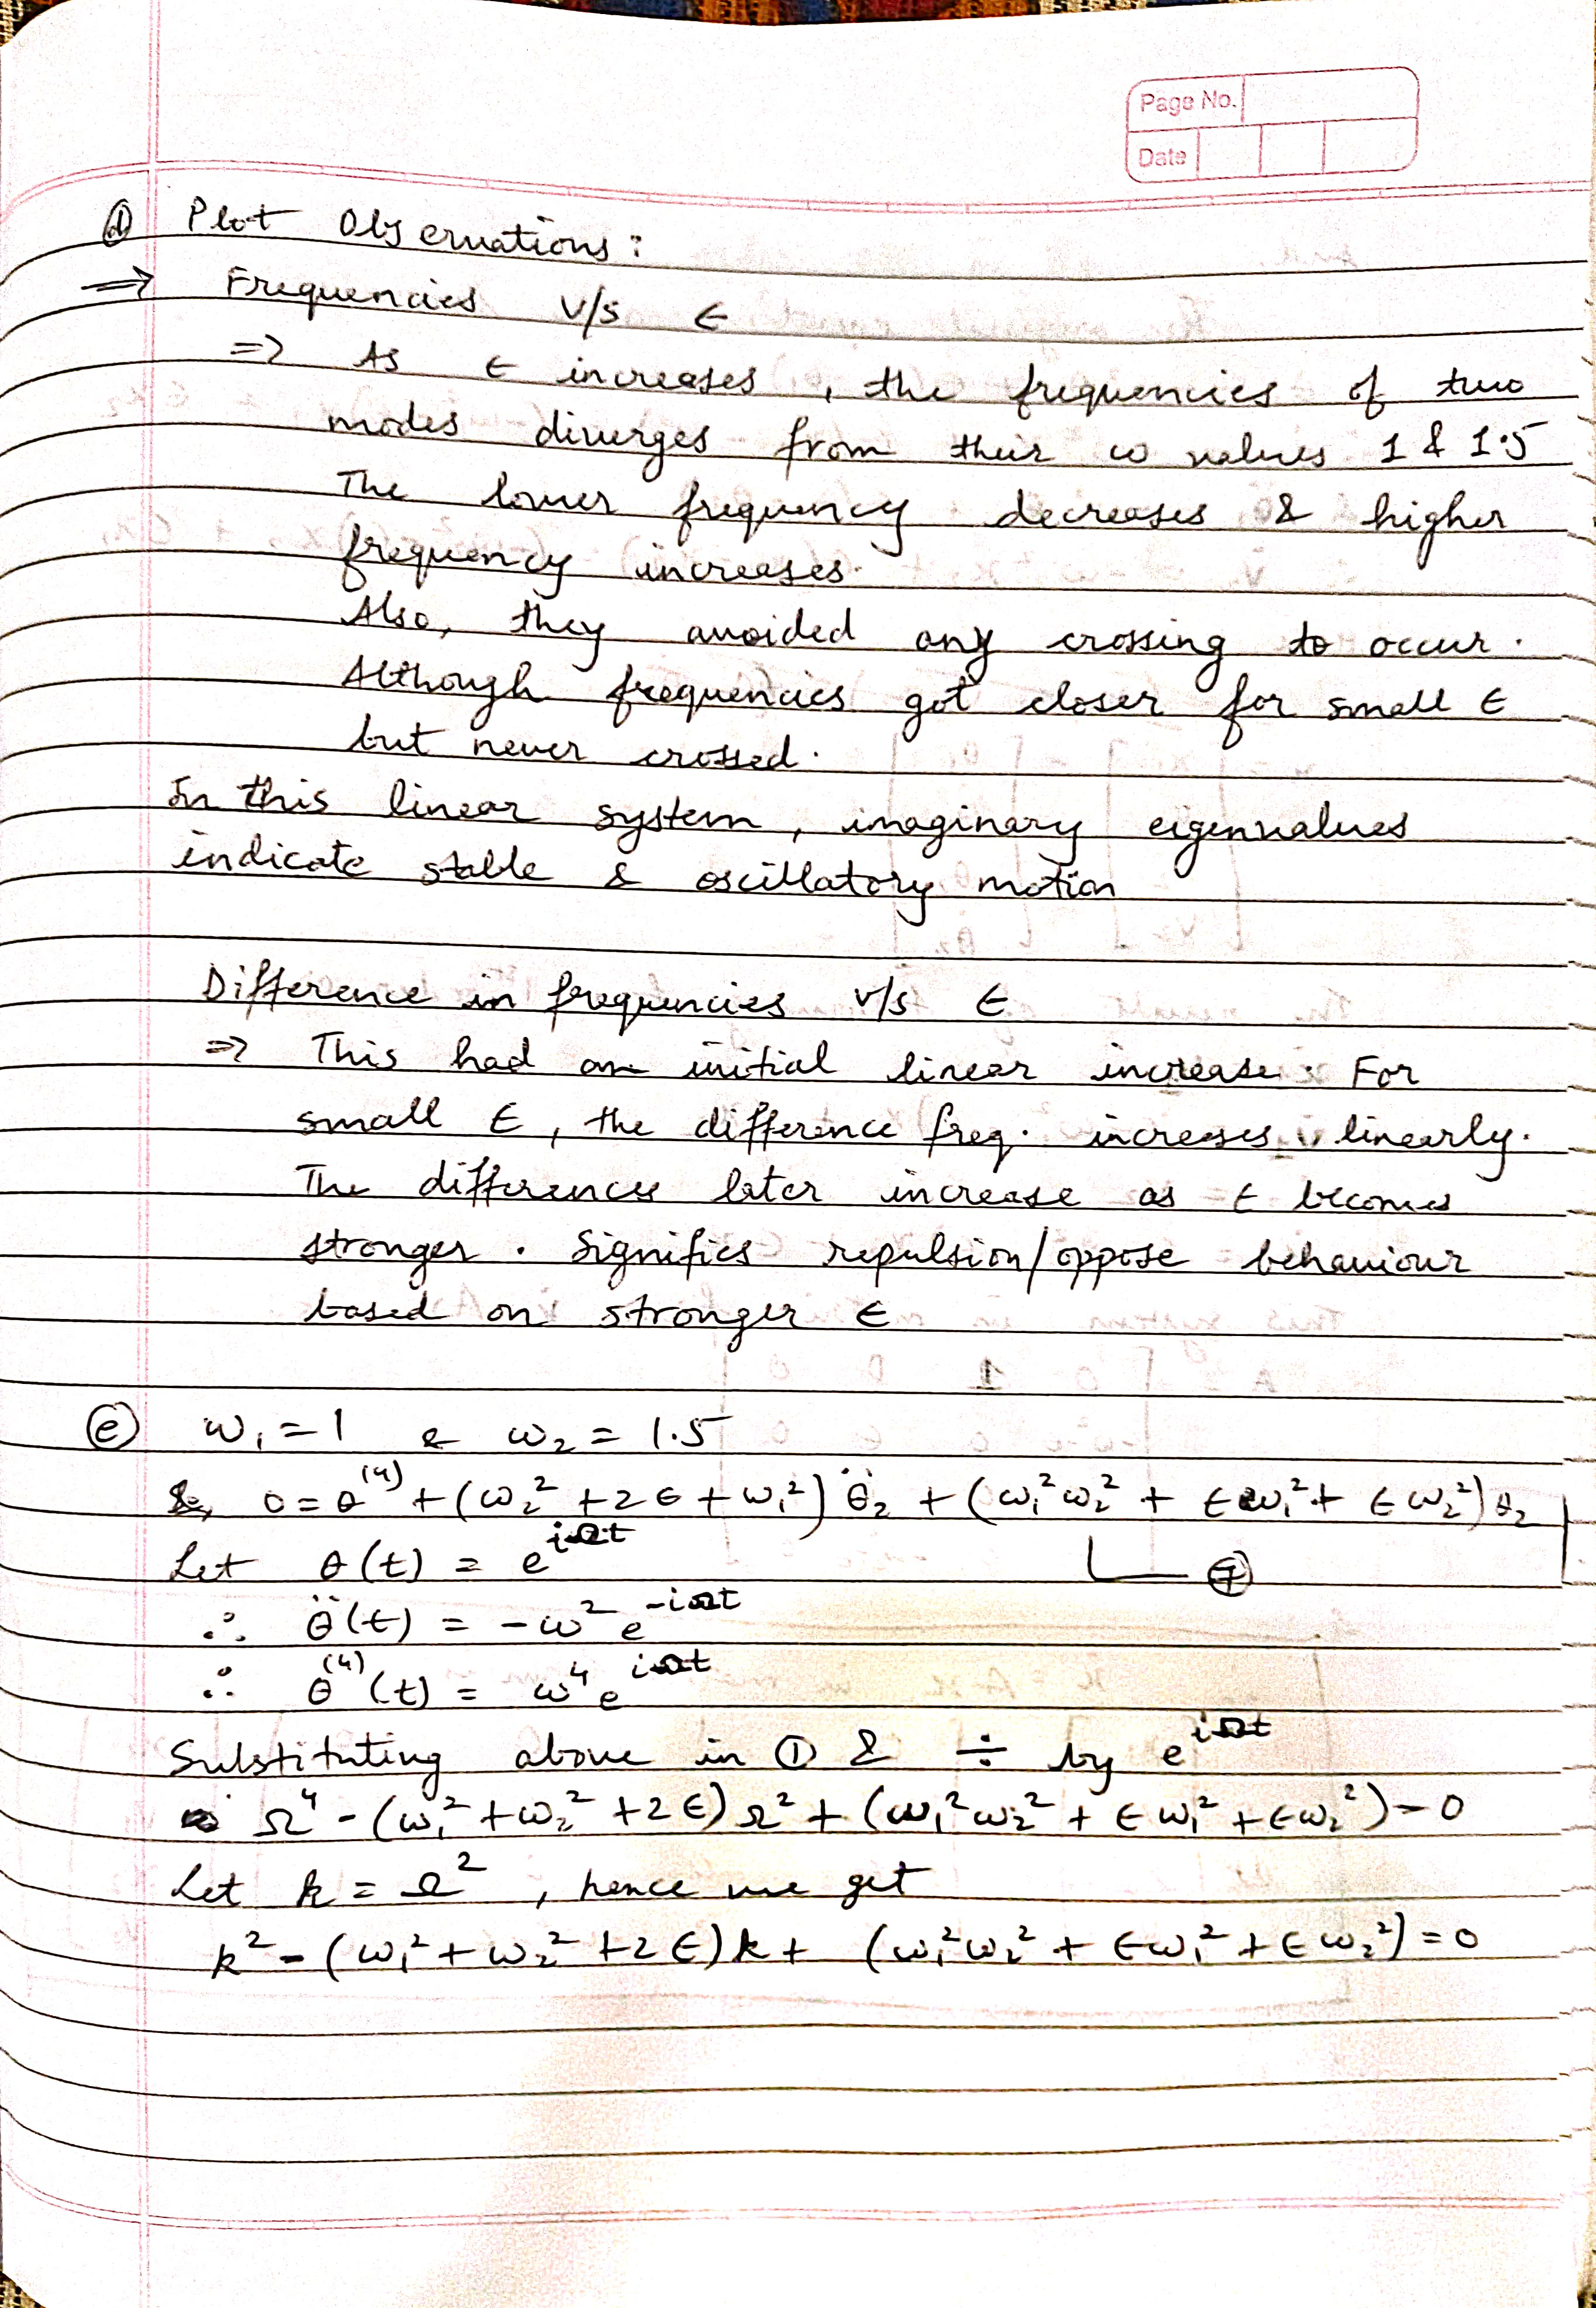 Page No.
Date
ⓓ Plot Observations :
⇒ Frequencies v/s ϵ
⇒ As ϵ increases , the frequencies of two
modes diverges from their ω values 1 & 1.5
The lower frequency decreases & higher
frequency increases.
Also, they avoided any crossing to occur.
Although frequencies got closer for small ϵ
but never crossed.
In this linear system , imaginary eigenvalues
indicate stable & oscillatory motion
Difference in frequencies v/s ϵ
⇒ This had an initial linear increase. For
small ϵ , the difference freq. increases linearly.
The differences later increase as ϵ becomes
stronger . Signifies repulsion/oppose behaviour
based on stronger ϵ
ⓔ ω₁ = 1 & ω₂ = 1.5
0 = θ⁽⁴⁾ + (ω₂² + 2ϵ + ω₁²) θ̈₂ + (ω₁²ω₂² + ϵω₁² + ϵω₂²) θ₂
Let θ(t) = e^{iΩt}
∴ θ̈(t) = -ω² e^{-iΩt}
∴ θ⁽⁴⁾(t) = ω⁴ e^{iΩt}
Substituting above in ① & ÷ by e^{iΩt}
Ω⁴ - (ω₁² + ω₂² + 2ϵ) Ω² + (ω₁²ω₂² + ϵω₁² + ϵω₂²) = 0
Let k = Ω² , hence we get
k² - (ω₁² + ω₂² + 2ϵ) k + (ω₁²ω₂² + ϵω₁² + ϵω₂²) = 0